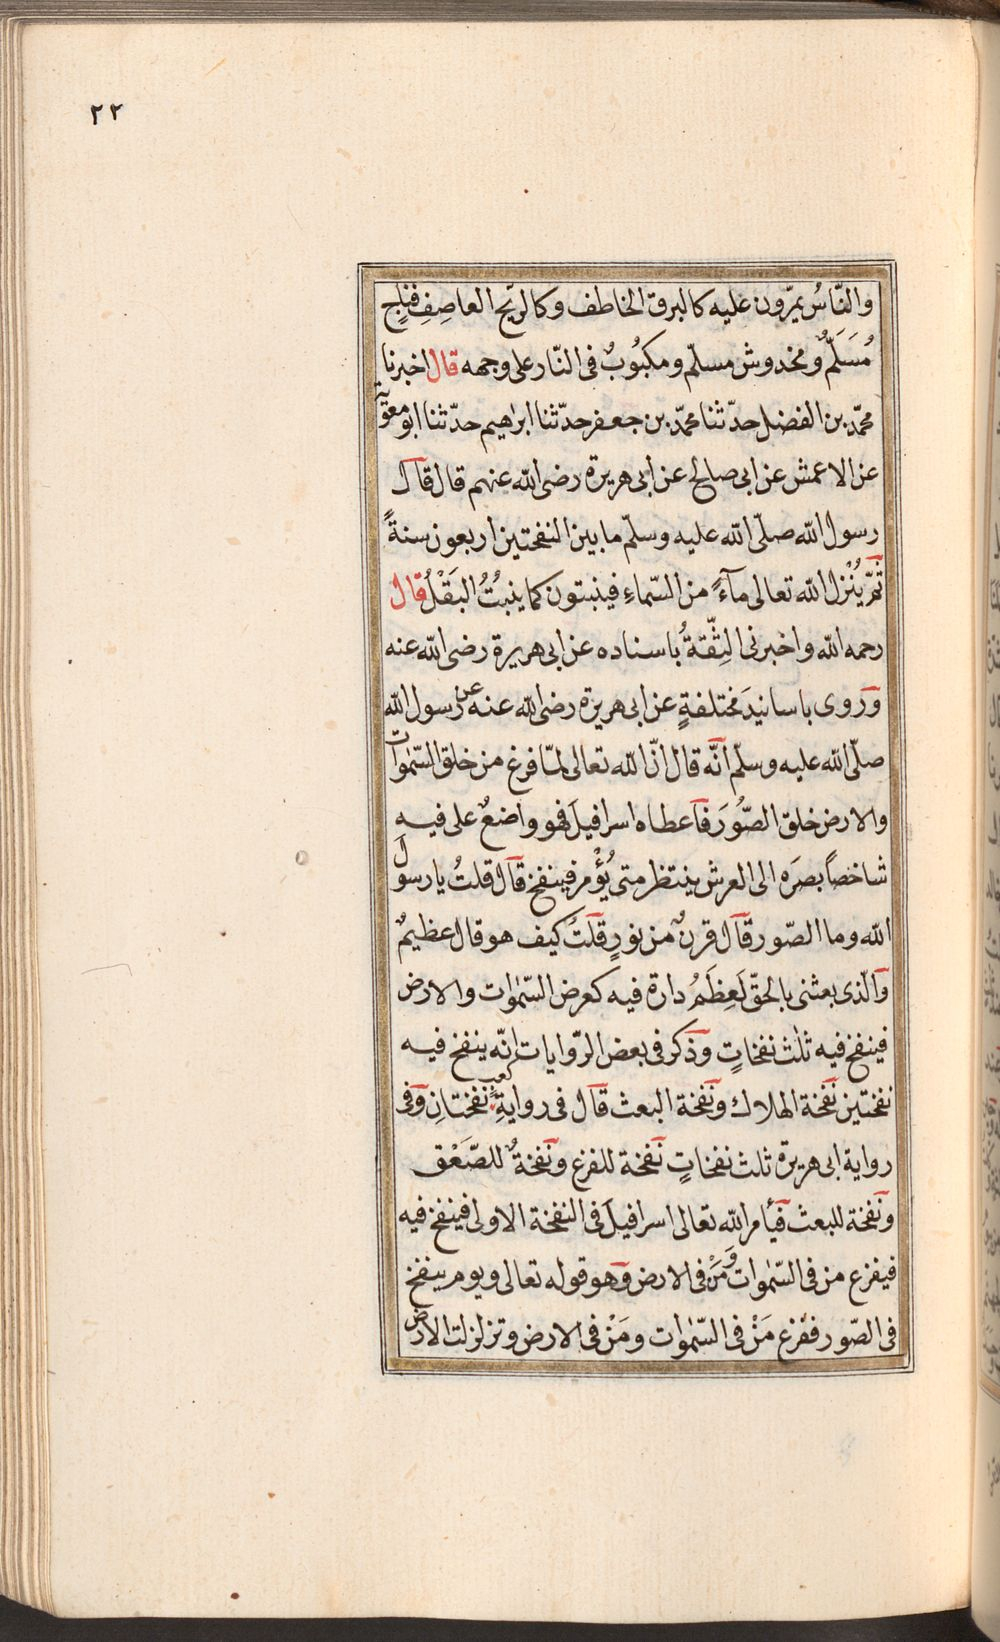 ٢٢
والنّاسُ يمرّون عليه كالبرق الخاطف وكالريح العاصِفِ فناجٍ
مُسَلَّمٌ ومخدوش مسلّم ومكبُوبٌ فى النّار على وجهه قال اخبرنا
محمّد بن الفضل حدّثنا محمّد بن جعفر حدّثنا ابرٰهيم حدّثنا ابو معٰوية
عن الاعمش عن ابى صالح عن ابى هريرة رضى الله عنهم قال قال
رسول الله صلّى الله عليه وسلّم ما بين النفختين اربعون سنةً
ثمّ يُنْزل الله تعالى مآءً من السّماءِ فينبتون كما ينبُتُ البَقْلُ قال
رحمه الله واخبرنى الثِّقَةُ باسناده عن ابى هريرة رضى الله عنه
وروى باسانيدَ مختلفةٍ عن ابى هريرة رضى الله عنه عن رسول الله
صلّى الله عليه وسلّم انّه قال انّ الله تعالى لمّا فرغ من خلق السّمٰوات
والارض خلق الصُّورَ فاعطاه اسرافيلَ فهو واضعٌ على فيه
شاخصاً بصرَه الى العرش ينتظر متى يُؤْمر فينفخ قال قلتُ يا رسول
الله وما الصّور قال قرنٌ من نورٍ قلتُ كيف هو قال عظيمٌ
والّذى بعثنى بالحقّ لَعِظَمُ دارة فيه كعرض السّمٰوات والارض
فينفخ فيه ثلٰث نفخاتٍ وذكر فى بعض الرّوايات انّه ينفخ فيه
نفختين نفخة الهلاك ونفخة البعث قال فى روايةِ كعبٍ نفختانِ وفى
رواية ابى هريرة ثلث نفخاتٍ نفخة للفزع ونفخةٌ للصَّعْق
ونفخة للبعث فيأمر الله تعالى اسرافيلَ فى النفخة الاولى فينفخ فيه
فيفزع من فى السّمٰوات ومَنْ فى الارض وهو قوله تعالى ويوم ينفخ
فى الصّور ففزع مَنْ فى السّمٰوات ومَنْ فى الارض وتزلزلت الارض